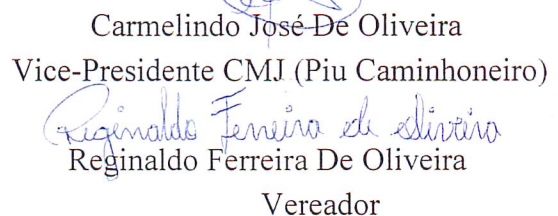 Carmelindo José De Oliveira
Vice-Presidente CMJ (Piu Caminhoneiro)
Reginaldo Ferreira de Oliveira
Reginaldo Ferreira De Oliveira
Vereador